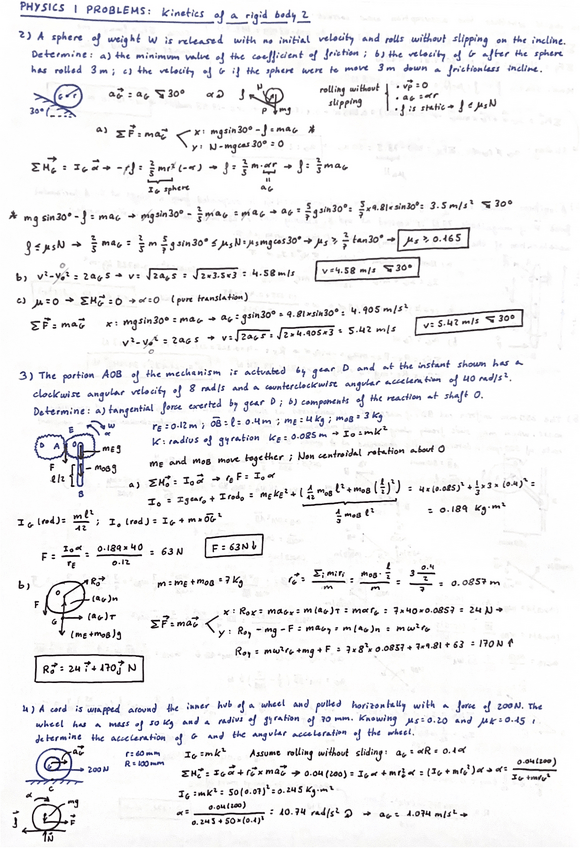 PHYSICS 1 PROBLEMS: Kinetics of a rigid body 2
2) A sphere of weight W is released with no initial velocity and rolls without slipping on the incline.
Determine: a) the minimum value of the coefficient of friction; b) the velocity of G after the sphere
has rolled 3m; c) the velocity of G if the sphere were to move 3m down a frictionless incline.
30° G r
a⃗G = aG ↘30° α↻
f N P mg
rolling without slipping
· v⃗P = 0
· aG = αr
· f is static → f ≤ μsN
a) ΣF⃗ = ma⃗G
x: mgsin30° - f = maG *
y: N - mgcos30° = 0
ΣM⃗G = IG α⃗ → -rf = 2/5 mr²(-α) → f = 2/5 m·αr → f = 2/5 maG
IG sphere aG
* mgsin30° - f = maG → mgsin30° - 2/5 maG = maG → aG = 5/7 gsin30° = 5/7 × 9.81 × sin30° = 3.5 m/s² ↘30°
f ≤ μsN → 2/5 maG = 2/5 m 5/7 gsin30° ≤ μsN = μsmgcos30° → μs ≥ 2/7 tan30° → μs ≥ 0.165
b) v² - v₀² = 2aGs → v = √2aGs = √2×3.5×3 = 4.58 m/s v = 4.58 m/s ↘30°
0
c) μ = 0 → ΣM⃗G = 0 → α = 0 (pure translation)
ΣF⃗ = ma⃗G x: mgsin30° = maG → aG = gsin30° = 9.81×sin30° = 4.905 m/s²
v² - v₀² = 2aGs → v = √2aGs = √2×4.905×3 = 5.42 m/s v = 5.42 m/s ↘30°
0
3) The portion AOB of the mechanism is actuated by gear D and at the instant shown has a
clockwise angular velocity of 8 rad/s and a counterclockwise angular acceleration of 40 rad/s².
Determine: a) tangential force exerted by gear D; b) components of the reaction at shaft O.
E ω α D A O F mEg mOBg l/2 B
rE = 0.12m; OB = l = 0.4m; mE = 4kg; mOB = 3kg
K: radius of gyration KE = 0.085m → IO = mK²
mE and mOB move together; Non centroidal rotation about O
a) ΣM⃗O = IO α⃗ → rEF = IOα
IO = IOgear + IOrod = mEKE² + (1/12 mOB l² + mOB(l/2)²) = 4×(0.085)² + 1/3 × 3 × (0.4)² =
1/3 mOB l² = 0.189 kg·m²
IG (rod) = ml²/12; IO (rod) = IG + mOG²
F = IOα/rE = 0.189×40/0.12 = 63N F = 63N ↓
b) m = mE + mOB = 7kg r⃗G = Σimiri/m = mOB·l/2/m = 3 0.4/2/7 = 0.0857m
F O G R⃗O (aG)n (aG)T (mE+mOB)g
ΣF⃗ = ma⃗G
x: ROx = maGx = m(aG)T = mαrG = 7×40×0.0857 = 24N →
y: ROy - mg - F = maGy = m(aG)n = mω²rG
ROy = mω²rG + mg + F = 7×8²×0.0857 + 7×9.81 + 63 = 170N ↑
R⃗O = 24 i⃗ + 170 j⃗ N
4) A cord is wrapped around the inner hub of a wheel and pulled horizontally with a force of 200N. The
wheel has a mass of 50kg and a radius of gyration of 70 mm. Knowing μs = 0.20 and μK = 0.15,
determine the acceleration of G and the angular acceleration of the wheel.
G a⃗G 200N C
r = 60mm
R = 100mm
IG = mK² Assume rolling without sliding: aG = αR = 0.1α
ΣM⃗C = IG α⃗ + r⃗G × ma⃗G → 0.04(200) = IGα + mrG²α = (IG + mrG²)α → α = 0.04(200)/IG + mrG²
IG = mK² = 50(0.07)² = 0.245 kg·m²
α = 0.04(200)/0.245 + 50×(0.1)² = 10.74 rad/s² ↻ → aG = 1.074 m/s² →
α mg F⃗ f⃗ N⃗